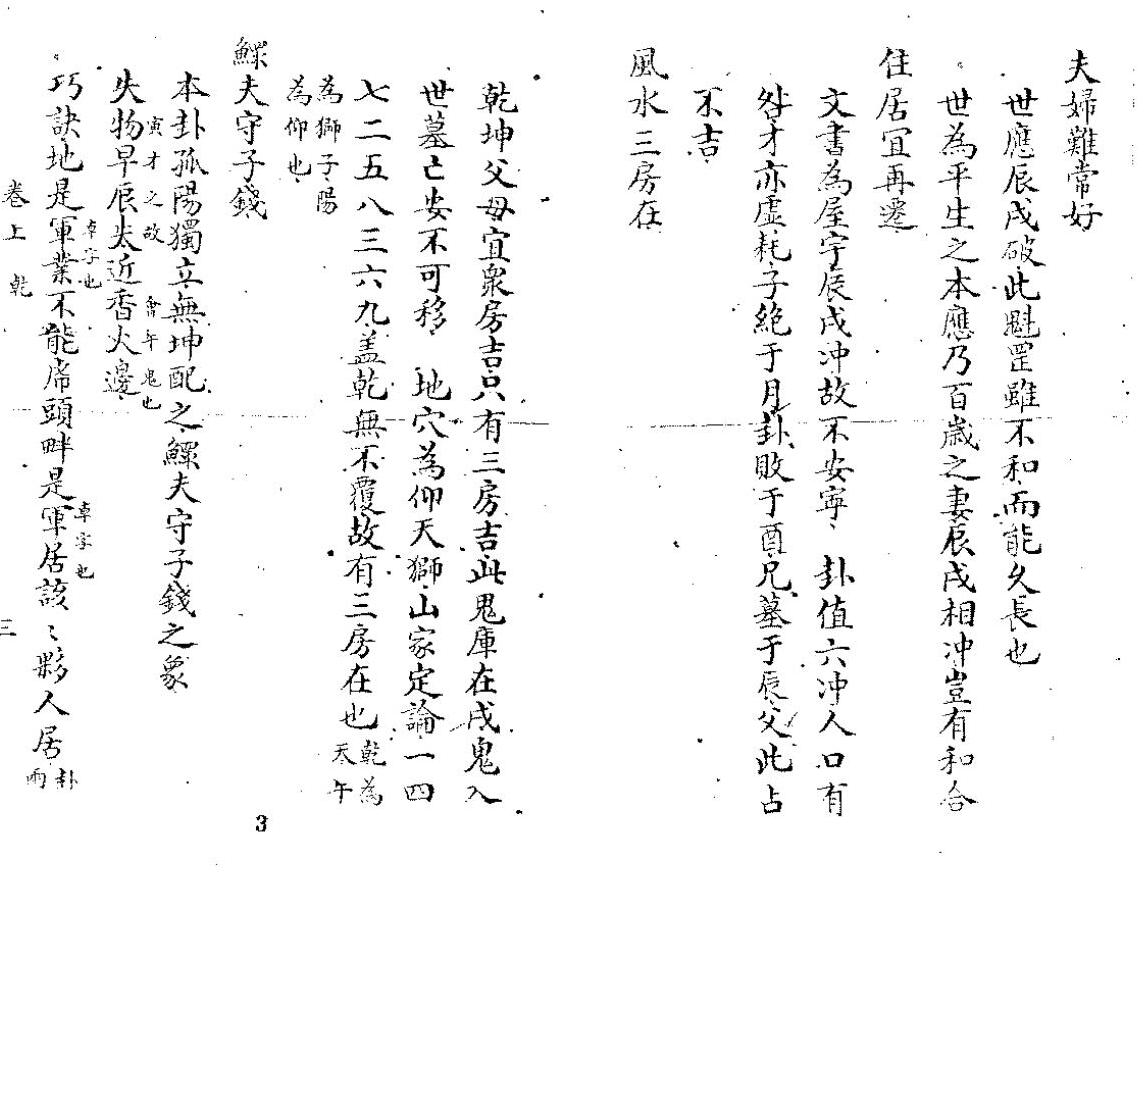 夫婦難常好
世應辰戌破此魁罡雖不和而能久長也
世為平生之本應乃百歲之妻辰戌相冲豈有和合
住居宜再遷
文書為屋宇辰戌冲故不安寧 卦值六冲人口有
咎才亦虛耗子絕于月卦敗于酉兄墓于辰父此占
不吉
風水三房在
乾坤父母宜衆房吉只有三房吉此鬼庫在戌鬼入
世墓亡安不可移 地穴為仰天獅山家定論一四
七二五八三六九盖乾無不覆故有三房在也乾為天午
為獅子陽
為仰也
鰥夫守子錢
本卦孤陽獨立無坤配之鰥夫守子錢之象
寅才之故 會午鬼也
失物早辰失近香火邊
卓字也 卓字也
巧訣地是軍業不能席頭畔是軍居該〻夥人居卦兩
卷上 乾 三
3